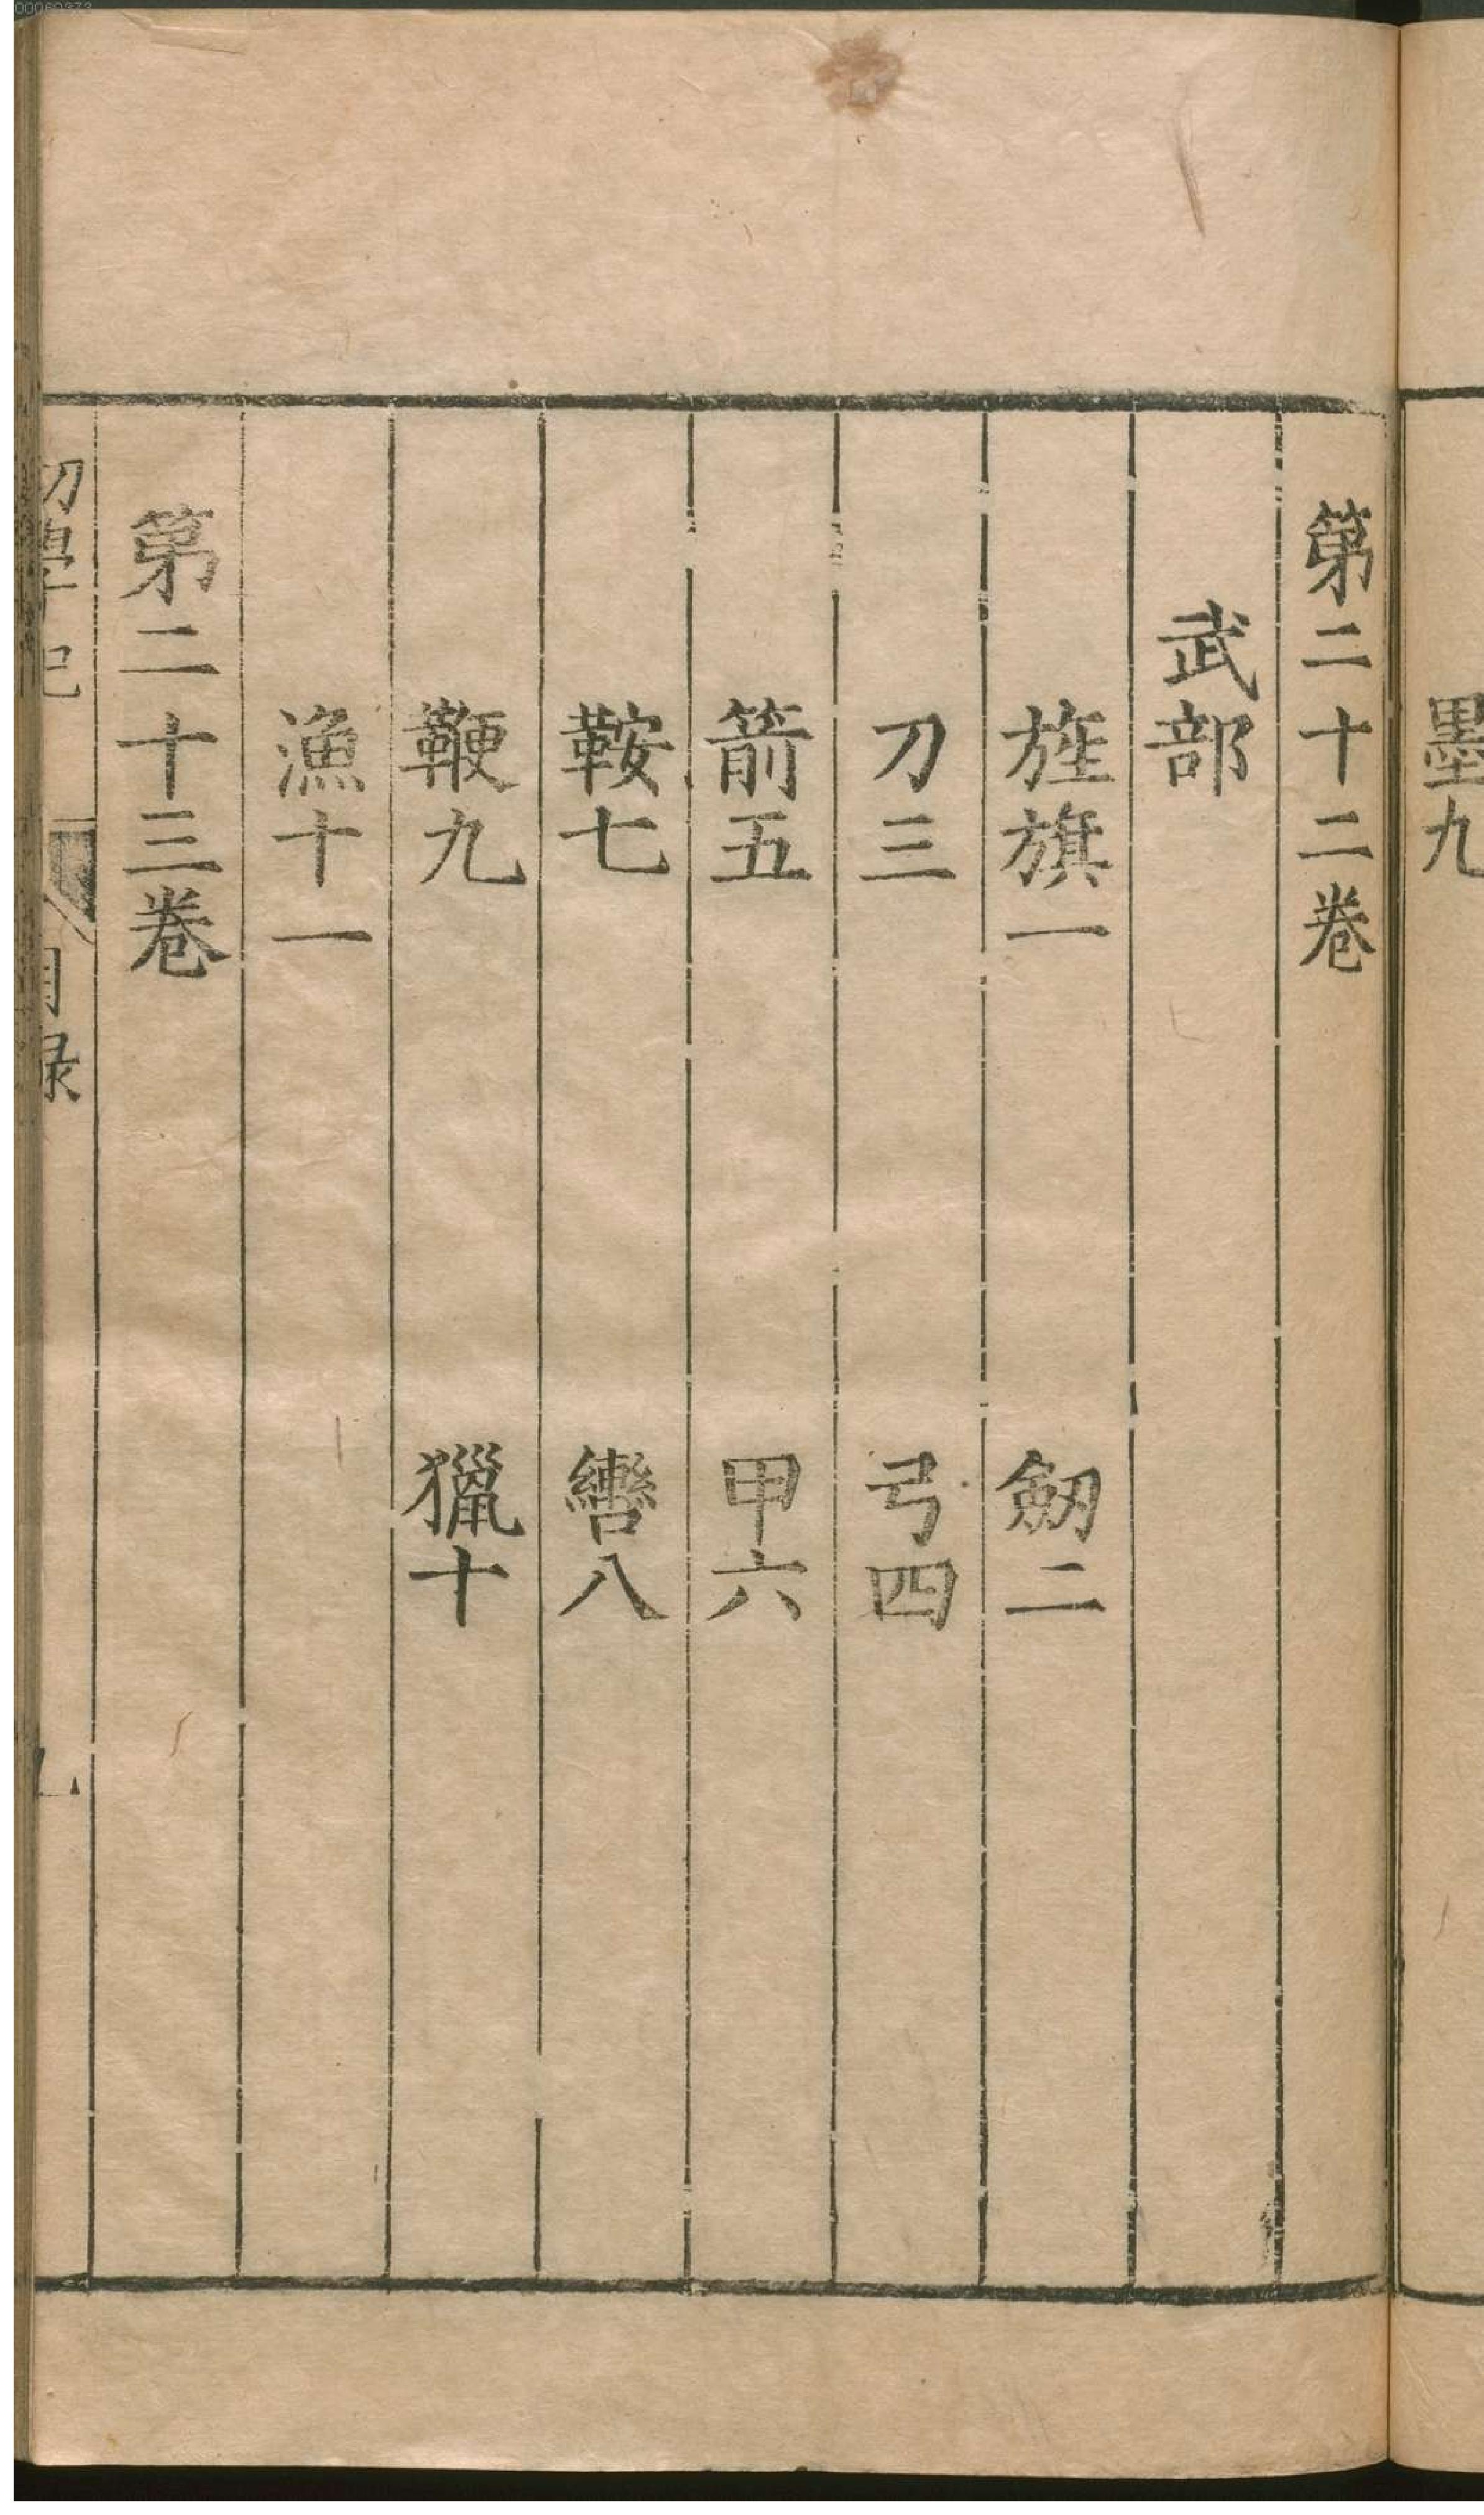 墨九
第二十二卷
武部
旌旗一　劒二
刀三　弓四
箭五　甲六
鞍七　轡八
鞭九　獵十
漁十一
第二十三卷
初學記　目録　九
00060373